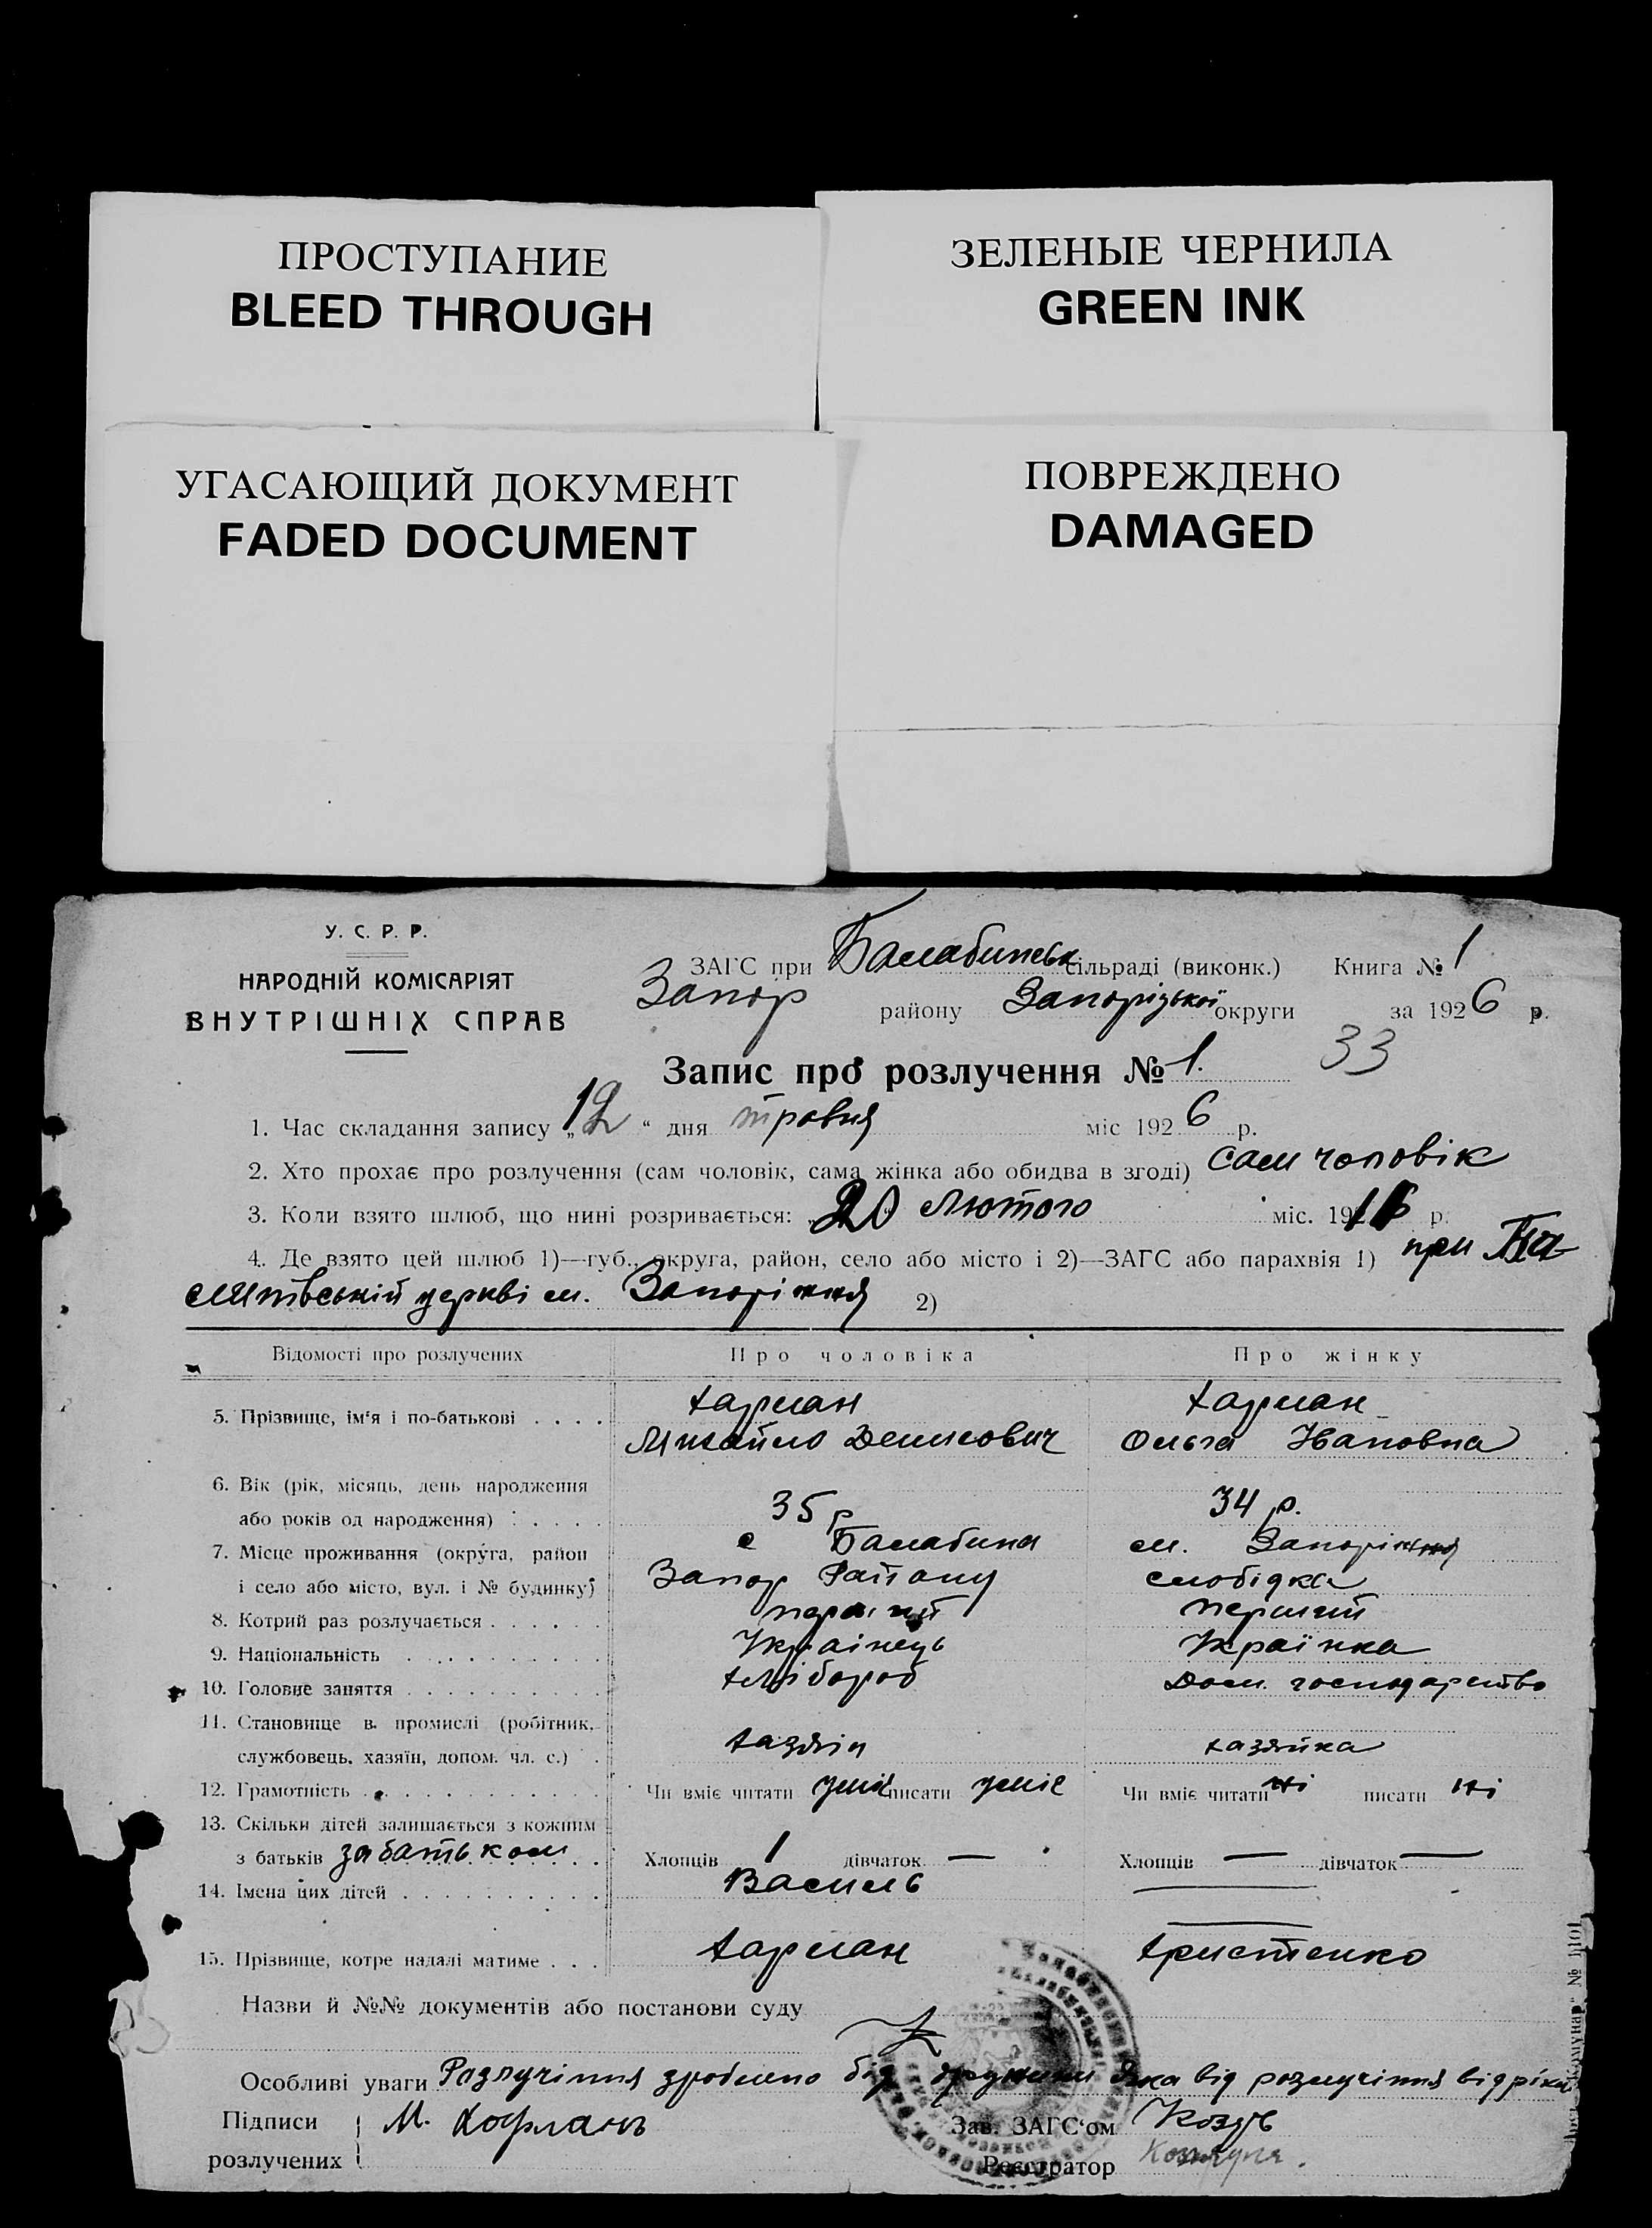 ПРОСТУПАНИЕ
BLEED THROUGH
ЗЕЛЕНЫЕ ЧЕРНИЛА
GREEN INK
УГАСАЮЩИЙ ДОКУМЕНТ
FADED DOCUMENT
ПОВРЕЖДЕНО
DAMAGED
У. С. Р. Р.
НАРОДНІЙ КОМІСАРІЯТ
ВНУТРІШНІХ СПРАВ
ЗАГС при Балабинськ сільраді (виконк.) Книга № 1
Запор району Запорізької округи за 1926 р.
Запис про розлучення № 1.
33
1. Час складання запису „12“ дня травня міс 1926 р.
2. Хто прохає про розлучення (сам чоловік, сама жінка або обидва в згоді) сам чоловік
3. Коли взято шлюб, що нині розривається: „20 Лютого міс. 1916 р.
4. Де взято цей шлюб 1)—губ., округа, район, село або місто і 2)—ЗАГС або парахвія 1) при
церкві м. Запоріжжя 2)
Відомості про розлучених Про чоловіка Про жінку
5. Прізвище, ім‘я і по-батькові . . . . Харлан Харлан
Михайло Денисович Ольга Івановна
6. Вік (рік, місяць, день народження
або років од народження) . . . . . 35 р 34 р.
7. Місце проживання (округа, район с Балабина м. Запоріжжя
і село або місто, вул. і № будинку) Запор Району слобідка
8. Котрий раз розлучається . . . . . . перший перший
9. Національність . . . . . . . . . . Українець Українка
10. Головне заняття . . . . . . . . . . хлібороб Дом. господарство
11. Становище в промислі (робітник,
службовець, хазяїн, допом. чл. с.) . хазяін хазяйка
12. Грамотність . . . . . . . . . . . Чи вміє читати уміє писати уміє Чи вміє читати ні писати ні
13. Скільки дітей залишається з кожним
з батьків за батьком Хлопців 1 дівчаток — Хлопців — дівчаток —
14. Імена цих дітей . . . . . . . . . . Василь
15. Прізвище, котре надалі матиме . . . Харлан Христенко
Назви й №№ документів або постанови суду
Особливі уваги Разлучіння зроблено без дружини яка від розлучіння
Підписи М. Харлань Зав. ЗАГС‘ом
розлучених Реєстратор